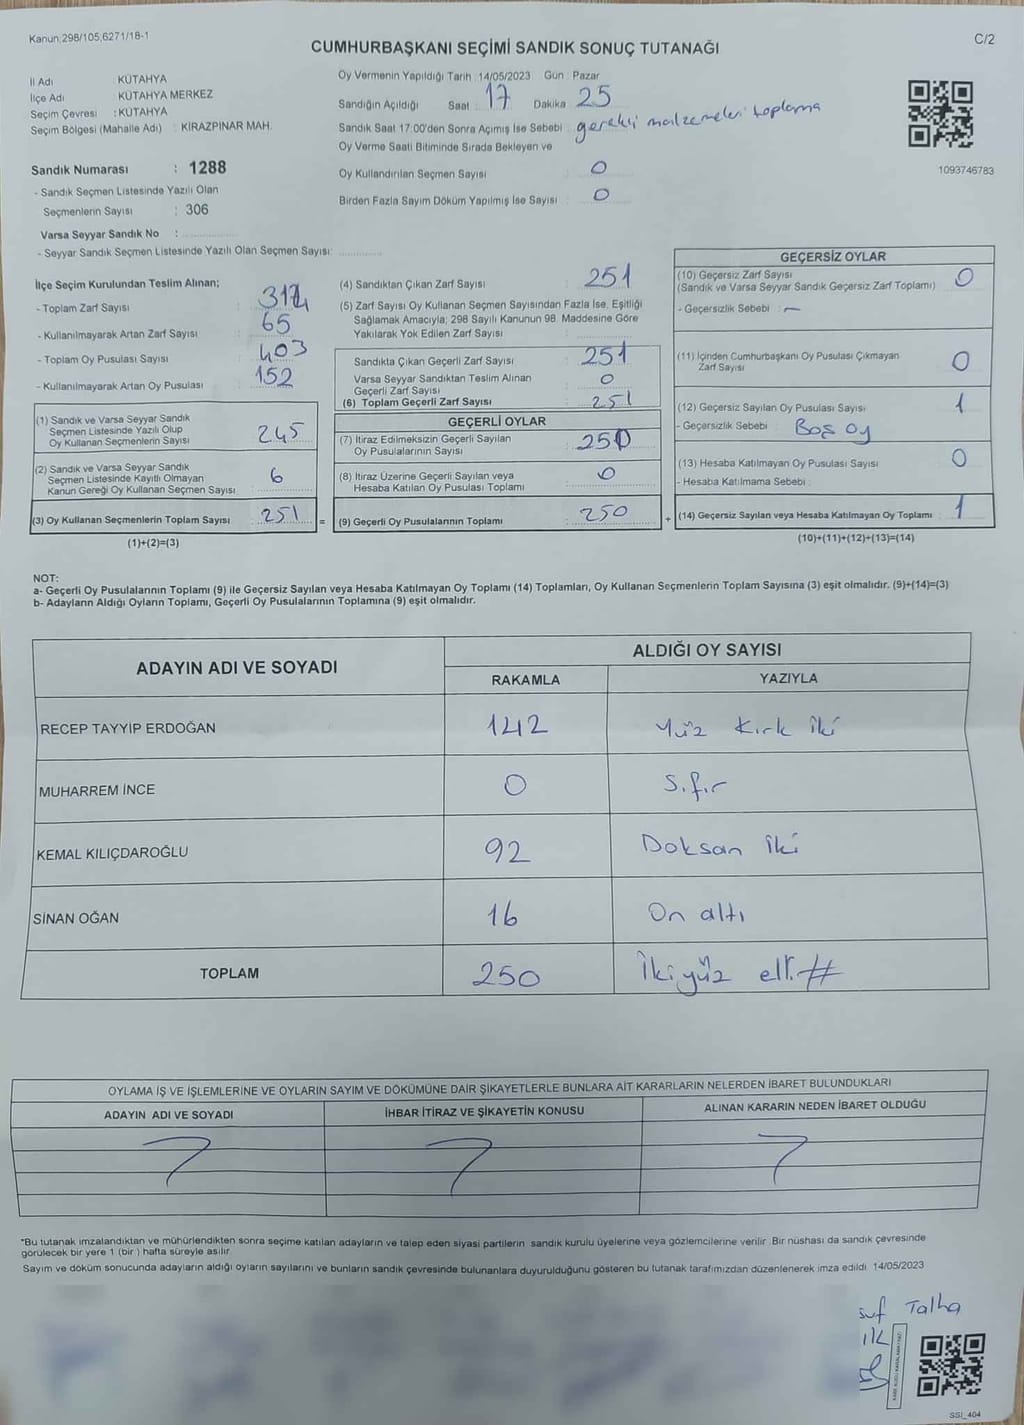 Kanun;298/105,6271/18-1
C/2
CUMHURBAŞKANI SEÇİMİ SANDIK SONUÇ TUTANAĞI
İl Adı : KÜTAHYA
İlçe Adı : KÜTAHYA MERKEZ
Seçim Çevresi : KÜTAHYA
Seçim Bölgesi (Mahalle Adı) : KİRAZPINAR MAH.
Oy Vermenin Yapıldığı Tarih : 14/05/2023 Gün : Pazar
Sandığın Açıldığı Saat : 17 Dakika : 25
Sandık Saat 17:00'den Sonra Açımış İse Sebebi : gerekli malzemeleri toplama
Oy Verme Saati Bitiminde Sırada Bekleyen ve
Oy Kullandırılan Seçmen Sayısı : 0
Birden Fazla Sayım Döküm Yapılmış İse Sayısı : 0
1093746783
Sandık Numarası : 1288
- Sandık Seçmen Listesinde Yazılı Olan
Seçmenlerin Sayısı : 306
Varsa Seyyar Sandık No :
- Seyyar Sandık Seçmen Listesinde Yazılı Olan Seçmen Sayısı:
İlçe Seçim Kurulundan Teslim Alınan;
- Toplam Zarf Sayısı :
- Kullanılmayarak Artan Zarf Sayısı : 65
- Toplam Oy Pusulası Sayısı : 403
- Kullanılmayarak Artan Oy Pusulası : 152
(1) Sandık ve Varsa Seyyar Sandık
Seçmen Listesinde Yazılı Olup
Oy Kullanan Seçmenlerin Sayısı : 245
(2) Sandık ve Varsa Seyyar Sandık
Seçmen Listesinde Kayıtlı Olmayan
Kanun Gereği Oy Kullanan Seçmen Sayısı : 6
(3) Oy Kullanan Seçmenlerin Toplam Sayısı : 251 =
(1)+(2)=(3)
(4) Sandıktan Çıkan Zarf Sayısı : 251
(5) Zarf Sayısı Oy Kullanan Seçmen Sayısından Fazla İse, Eşitliği
Sağlamak Amacıyla; 298 Sayılı Kanunun 98. Maddesine Göre
Yakılarak Yok Edilen Zarf Sayısı :
Sandıkta Çıkan Geçerli Zarf Sayısı : 251
Varsa Seyyar Sandıktan Teslim Alınan
Geçerli Zarf Sayısı : 0
(6) Toplam Geçerli Zarf Sayısı : 251
GEÇERLİ OYLAR
(7) İtiraz Edilmeksizin Geçerli Sayılan
Oy Pusulalarının Sayısı : 250
(8) İtiraz Üzerine Geçerli Sayılan veya
Hesaba Katılan Oy Pusulası Toplamı : 0
(9) Geçerli Oy Pusulalarının Toplamı : 250 +
GEÇERSİZ OYLAR
(10) Geçersiz Zarf Sayısı
(Sandık ve Varsa Seyyar Sandık Geçersiz Zarf Toplamı) : 0
- Geçersizlik Sebebi : -
(11) İçinden Cumhurbaşkanı Oy Pusulası Çıkmayan
Zarf Sayısı : 0
(12) Geçersiz Sayılan Oy Pusulası Sayısı : 1
- Geçersizlik Sebebi : Boş Oy
(13) Hesaba Katılmayan Oy Pusulası Sayısı : 0
- Hesaba Katılmama Sebebi :
(14) Geçersiz Sayılan veya Hesaba Katılmayan Oy Toplamı : 1
(10)+(11)+(12)+(13)=(14)
NOT:
a- Geçerli Oy Pusulalarının Toplamı (9) ile Geçersiz Sayılan veya Hesaba Katılmayan Oy Toplamı (14) Toplamları, Oy Kullanan Seçmenlerin Toplam Sayısına (3) eşit olmalıdır. (9)+(14)=(3)
b- Adayların Aldığı Oyların Toplamı, Geçerli Oy Pusulalarının Toplamına (9) eşit olmalıdır.
ADAYIN ADI VE SOYADI
ALDIĞI OY SAYISI
RAKAMLA YAZIYLA
RECEP TAYYİP ERDOĞAN 142 Yüz Kırk iki
MUHARREM İNCE 0 Sıfır
KEMAL KILIÇDAROĞLU 92 Doksan iki
SİNAN OĞAN 16 On altı
TOPLAM 250 İkiyüz elli #
OYLAMA İŞ VE İŞLEMLERİNE VE OYLARIN SAYIM VE DÖKÜMÜNE DAİR ŞİKAYETLERLE BUNLARA AİT KARARLARIN NELERDEN İBARET BULUNDUKLARI
ADAYIN ADI VE SOYADI İHBAR İTİRAZ VE ŞİKAYETİN KONUSU ALINAN KARARIN NEDEN İBARET OLDUĞU
*Bu tutanak imzalandıktan ve mühürlendikten sonra seçime katılan adayların ve talep eden siyasi partilerin sandık kurulu üyelerine veya gözlemcilerine verilir. Bir nüshası da sandık çevresinde
görülecek bir yere 1 (bir ) hafta süreyle asılır.
Sayım ve döküm sonucunda adayların aldığı oyların sayılarını ve bunların sandık çevresinde bulunanlara duyurulduğunu gösteren bu tutanak tarafımızdan düzenlenerek imza edildi. 14/05/2023
suf Talha
SSI_404